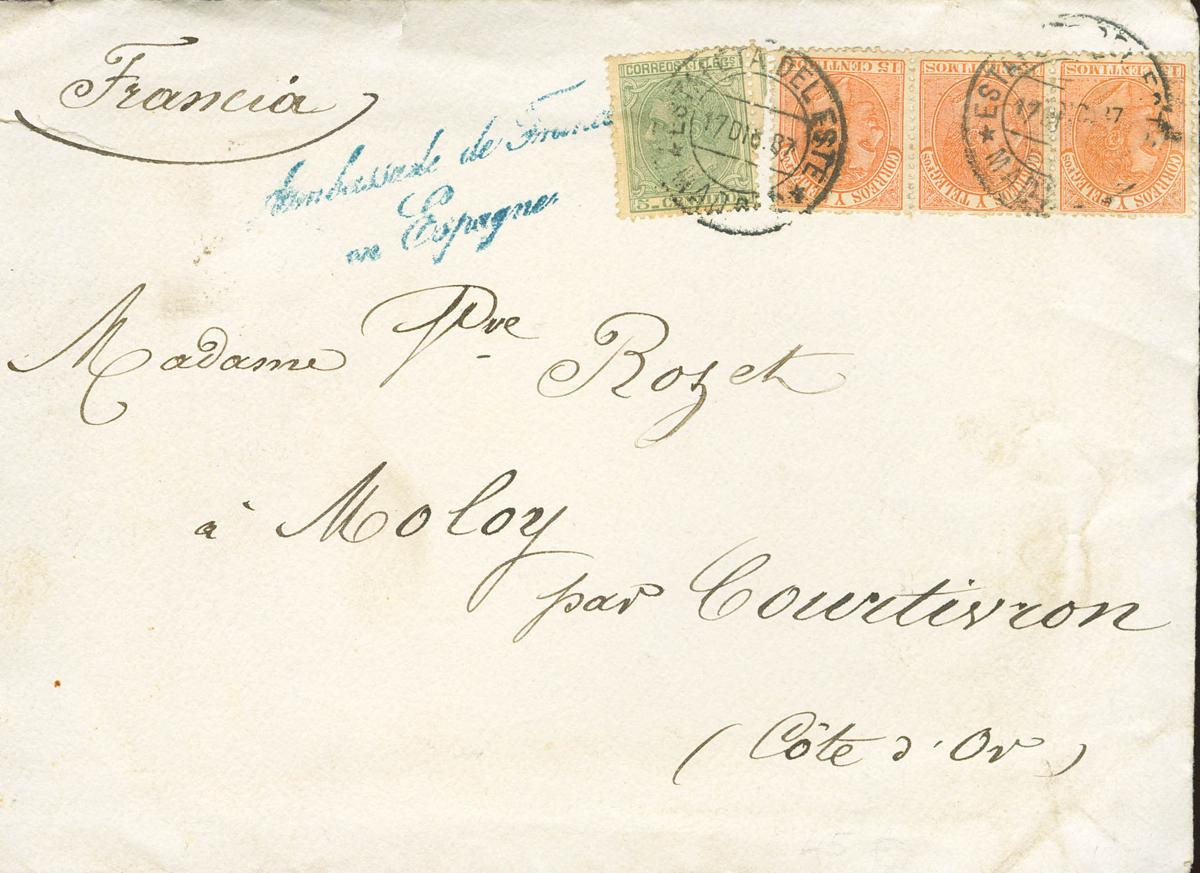 Francia
Ambassade de France
en Espagne
CORREOS Y TELEGS
5 C
ESTAFETA DEL ESTE
17 DIC. 87
MADRID
15 CENTIMOS
CORREOS Y TELEGFOS
15 CENTIMOS
CORREOS Y TELEGFOS
15 CENTIMOS
CORREOS Y TELEGFOS
ESTA DEL ESTE
17 DIC. 87
MA
Madame Pve Rozet
à Moloy
par Courtivron
(Côte d'Or)